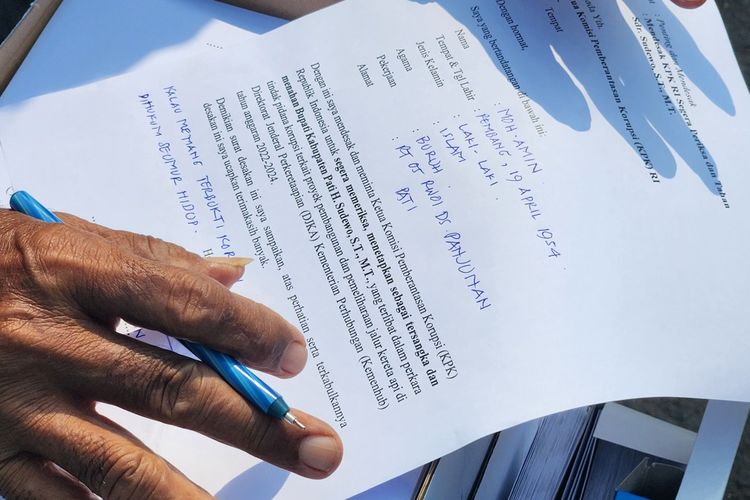 : Penting dan Mendesak
: Mendesak KPK RI Segera Periksa dan Tahan
Sdr. Sudewo, S.T., M.T.
Yth.
Komisi Pemberantasan Korupsi (KPK) RI
Tempat
Dengan hormat,
Saya yang bertandatangan di bawah ini:
Nama : MOH. AMIN
Tempat & Tgl Lahir : REMBANG, 19 APRIL 1954
Jenis Kelamin : LAKI LAKI
Agama : ISLAM
Pekerjan : BURUH
Alamat : RT 05 RW 01 DS PANJUNAN
PATI
Dengan ini saya mendesak dan meminta Ketua Komisi Pemberantasan Korupsi (KPK)
Republik Indonesia untuk segera memeriksa, menetapkan sebagai tersangka dan
menahan Bupati Kabupaten Pati H. Sudewo, S.T., M.T., yang terlibat dalam perkara
tindak pidana korupsi terkait proyek pembangunan dan pemeliharaan jalur kereta api di
Direktorat Jenderal Perkeretaapian (DJKA) Kementerian Perhubungan (Kemenhub)
tahun anggaran 2022-2024.
Demikian surat desakan ini saya sampaikan, atas perhatian serta terkabulkannya
desakan ini saya ucapkan terimakasih banyak.
KALAU MEMANG TERBUKTI KOR
DIHUKUM SEUMUR HIDUP.